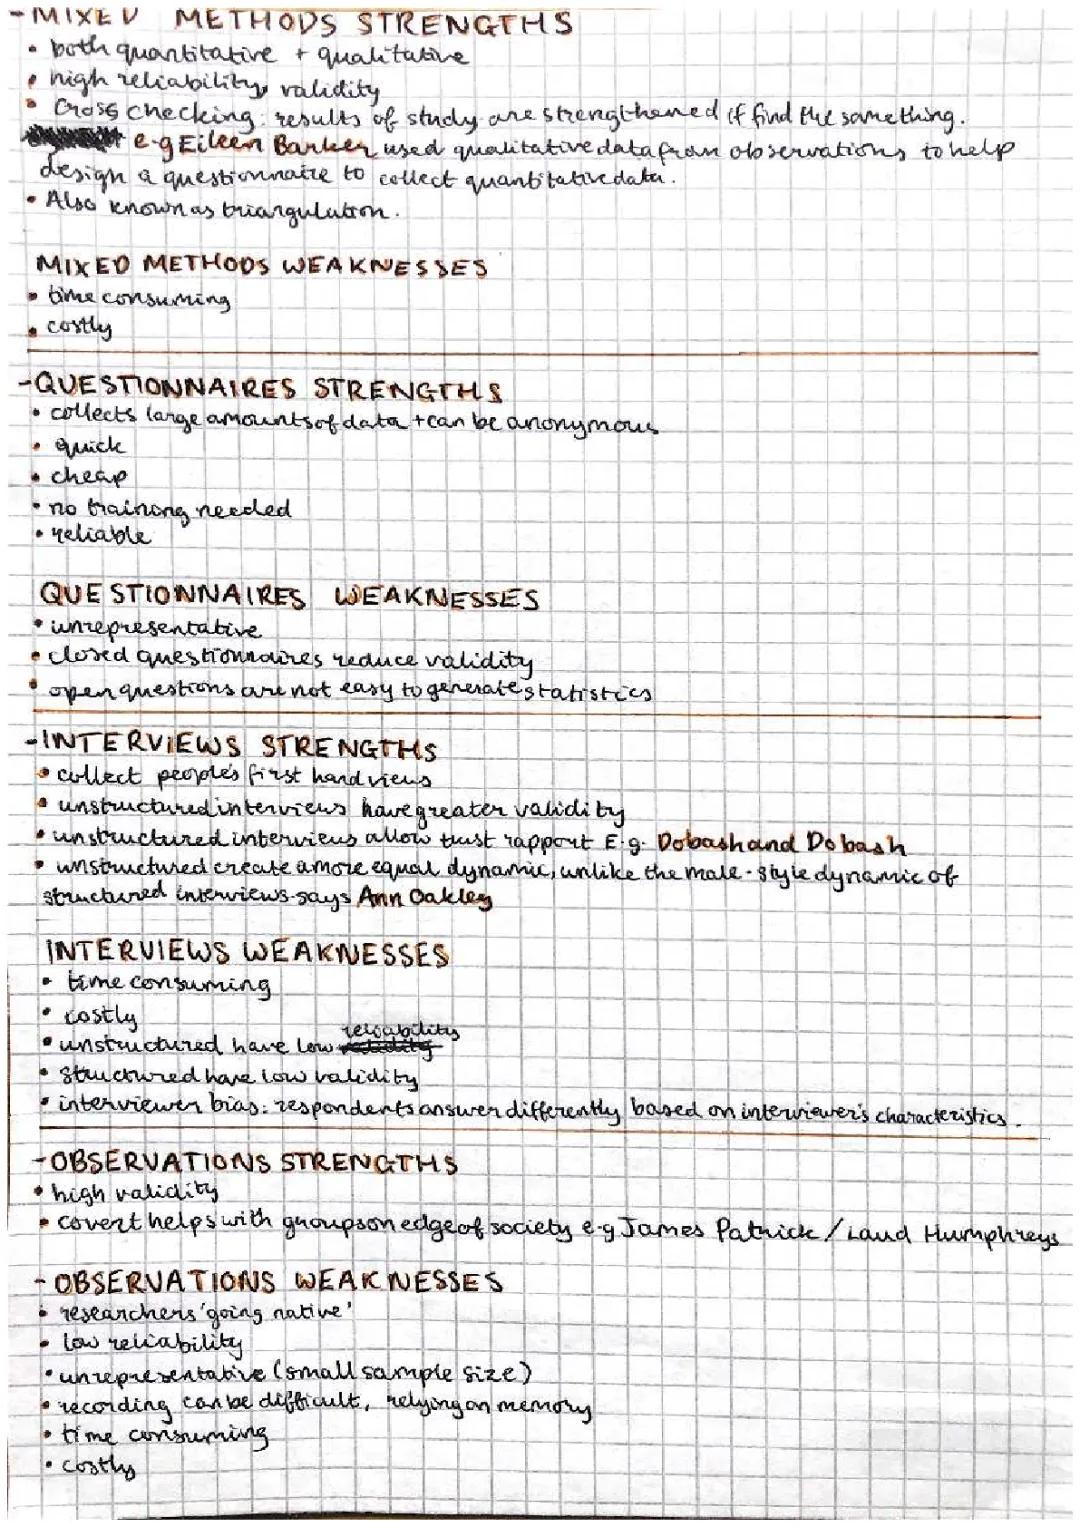 -MIXED METHODS STRENGTHS
• both quantitative + qualitative
• high reliability, validity
• Cross checking: results of study are strengthened if find the same thing.
e-g Eileen Barker used qualitative data from observations to help
design a questionnaire to collect quantitative data.
• Also known as triangulation.
MIXED METHODS WEAKNESSES
• time consuming
• costly
-QUESTIONNAIRES STRENGTHS
• collects large amounts of data + can be anonymous
• quick
• cheap
• no training needed
• reliable
QUESTIONNAIRES WEAKNESSES
• unrepresentative
• closed questionnaires reduce validity
• open questions are not easy to generate statistics
-INTERVIEWS STRENGTHS
• collect people's first hand views
• unstructured interviews have greater validity
• unstructured interviews allow trust rapport E.g. Dobash and Dobash
• unstructured create a more equal dynamic, unlike the male-style dynamic of
structured interviews-says Ann Oakley
INTERVIEWS WEAKNESSES
• time consuming
• costly
• unstructured have low reliability
• structured have low validity
• interviewer bias: respondents answer differently based on interviewer's characteristics.
-OBSERVATIONS STRENGTHS
• high validity
• covert helps with groups on edge of society e-g James Patrick / Laud Humphreys
- OBSERVATIONS WEAKNESSES
• researchers 'going native'
• low reliability
• unrepresentative (small sample size)
• recording can be difficult, relying on memory
• time consuming
• costly